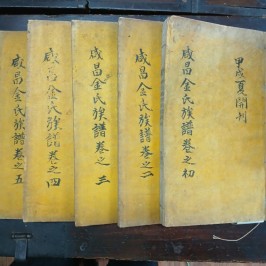 甲戌夏開刊
咸昌金氏族譜卷之初
咸昌金氏族譜卷之二
咸昌金氏族譜卷之三
咸昌金氏族譜卷之四
咸昌金氏族譜卷之五